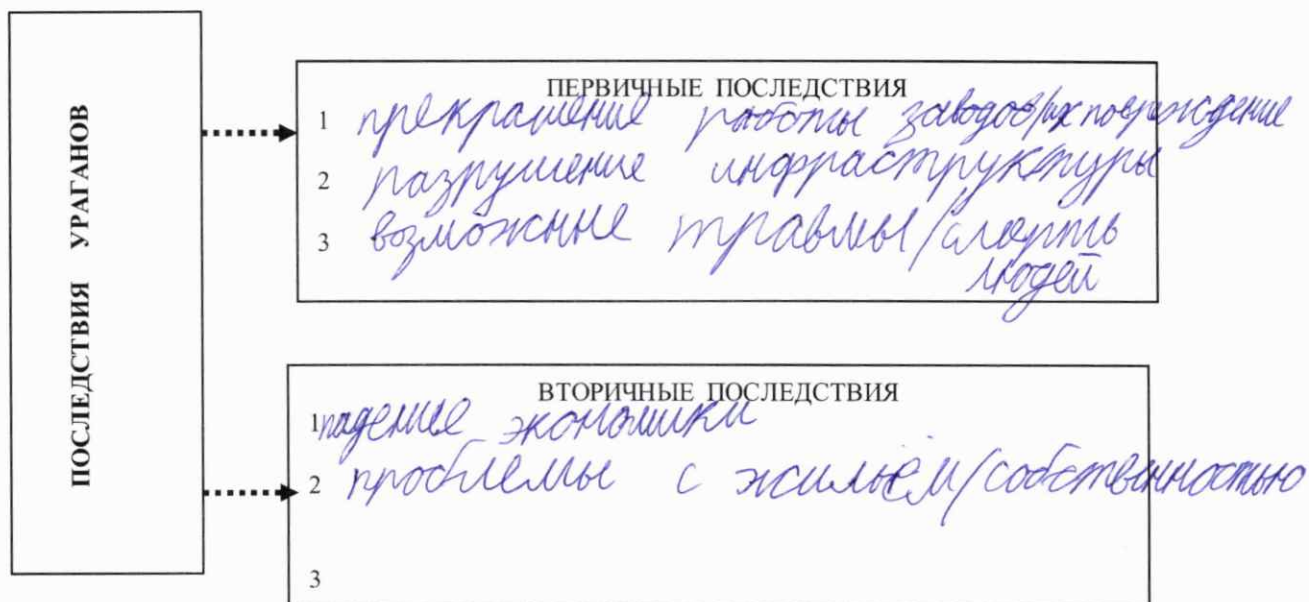 ПОСЛЕДСТВИЯ УРАГАНОВ
ПЕРВИЧНЫЕ ПОСЛЕДСТВИЯ
1 прекращение работы заводов/их повреждение
2 разрушение инфраструктуры
3 возможные травмы/смерть
людей
ВТОРИЧНЫЕ ПОСЛЕДСТВИЯ
1 падение экономики
2 проблемы с жильём/собственностью
3